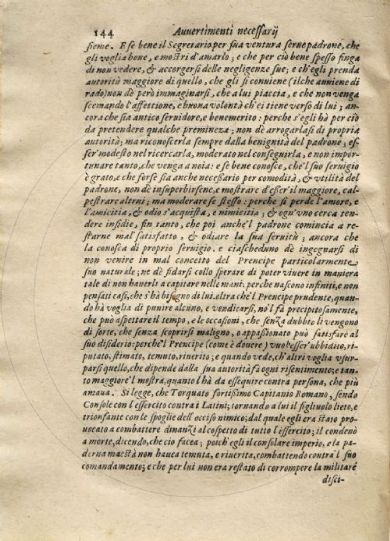 144 Auuertimenti necessarij
sieme. E se bene il Segretario per sua ventura serue padrone, che
gli voglia bene, e mostri d'amarlo; e che per ciò bene spesso finga
di non vedere, & accorgersi delle negligenze sue; e ch'egli prenda
autorità maggiore di quello, che gli si conuiene (il che auuiene di
rado) non dè però immaginarsi, che a lui piaccia, e che non venga
scemando l'affettione, e buona volontà ch'ei tiene verso di lui; an-
cora che sia antico seruidore, e benemerito: perche s'egli hà per ciò
da pretendere qualche preminēza; non dè arrogarlasi di propria
autorità; ma riconoscerla sempre dalla benignità del padrone; es-
ser modesto nel ricercarla, moderato nel conseguirla; e non impor-
tunare tanto, che venga a noia: e se bene conosce, che'l suo seruigio
è grato, e che forse sia anche necessario per comodità, & vtilità del
padrone, non dè insuperbirsene, e mostrare d'esser il maggiore, cal-
pestrare altri; ma moderare se stesso: perche si perde l'amore, e
l'amicitia, & odio s'acquista, e nimicitia; & ogn'vno cerca ten-
dere insidie, fin tanto, che poi anche'l padrone comincia a re-
starne mal satisfatto, & odiare la sua seruitù; ancora che
la conosca di proprio seruigio, e ciascheduno dè ingegnarsi di
non venire in mal concetto del Prencipe particolarmente
suo naturale; ne dè fidarsi collo sperare di poter viuere in maniera
tale di non hauerli a capitare nelle mani: perche nascono infiniti, e non
pensati casi, che s'hà bisogno di lui. altra che'l Prencipe prudente, quan-
do hà voglia di punire alcuno, e vendicarsi, nō'l fà precipitosamente,
che può aspettare il tempo, e le occasioni, che senza dubbio li vengono
di sorte, che senza scoprirsi maligno, e appassionato può satisfare al
suo disiderio: perche'l Prencipe (come è douere) vuol'esser'vbbidito, ri-
putato, stimato, temuto, riuerito; e quando vede, ch'altri voglia vsur-
parsi quello, che dipende dalla sua autorità fà ogni risentimento; e tan-
to maggiore'l mostra, quanto l'hà da esseguire contra persona, che più
amaua. Si legge, che Torquato fortissimo Capitanio Romano, sendo
Console con l'essercito contra i Latini; tornando a lui il figliuolo lieto, e
trionfante con le spoglie dell'occiso nimico; dal quale egli era stato pro-
uocato a combattere dinanzi al cospetto di tutto l'essercito; il condenò
a morte, dicendo, che ciò facea; poich'egli il consolare imperio, e la pa-
terna maestà non hauea temuta, e riuerita, combattendo contra'l suo
comandamento; e che per lui non era restato di corrompere la militare
disci-